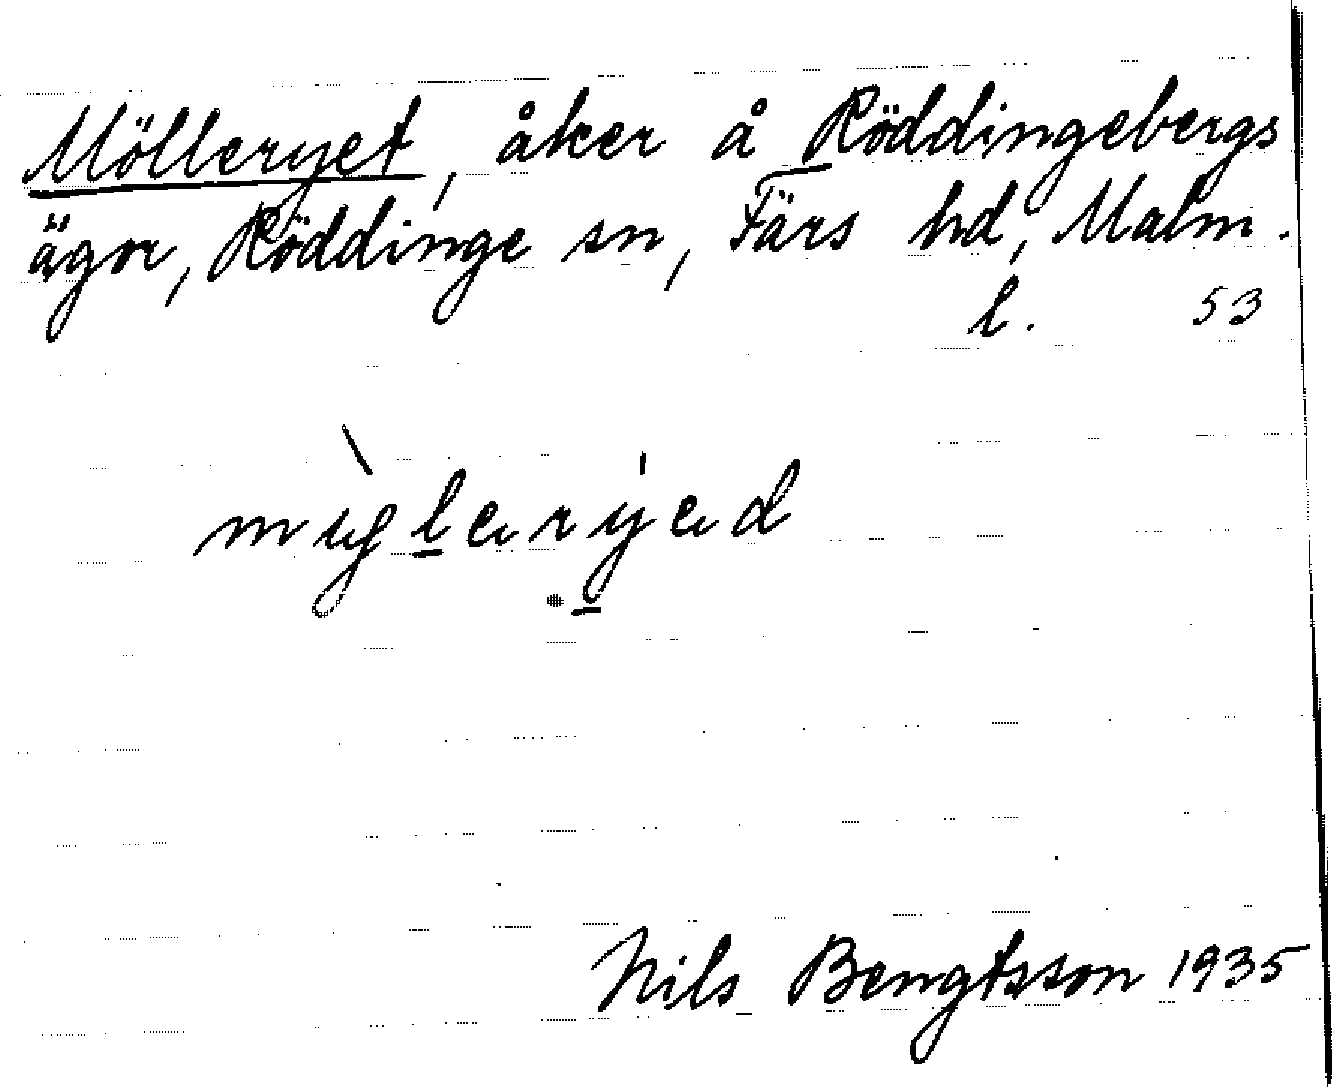 Mölleryet, åker å Röddingebergs
ägor, Röddinge sn, Färs hd, Malm.
l. 53
Nils Bengtsson 1935